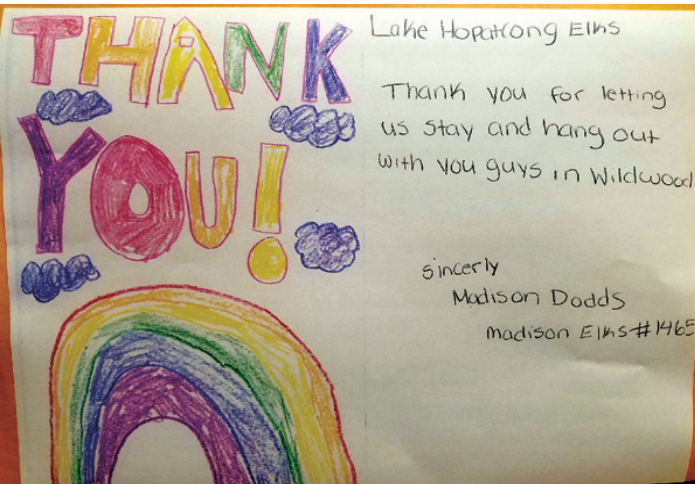 THANK
YOU!
Lake Hopatcong Elks
Thank you for letting
us stay and hang out
with you guys in Wildwood
sincerly
Madison Dodds
madison Elks #1465